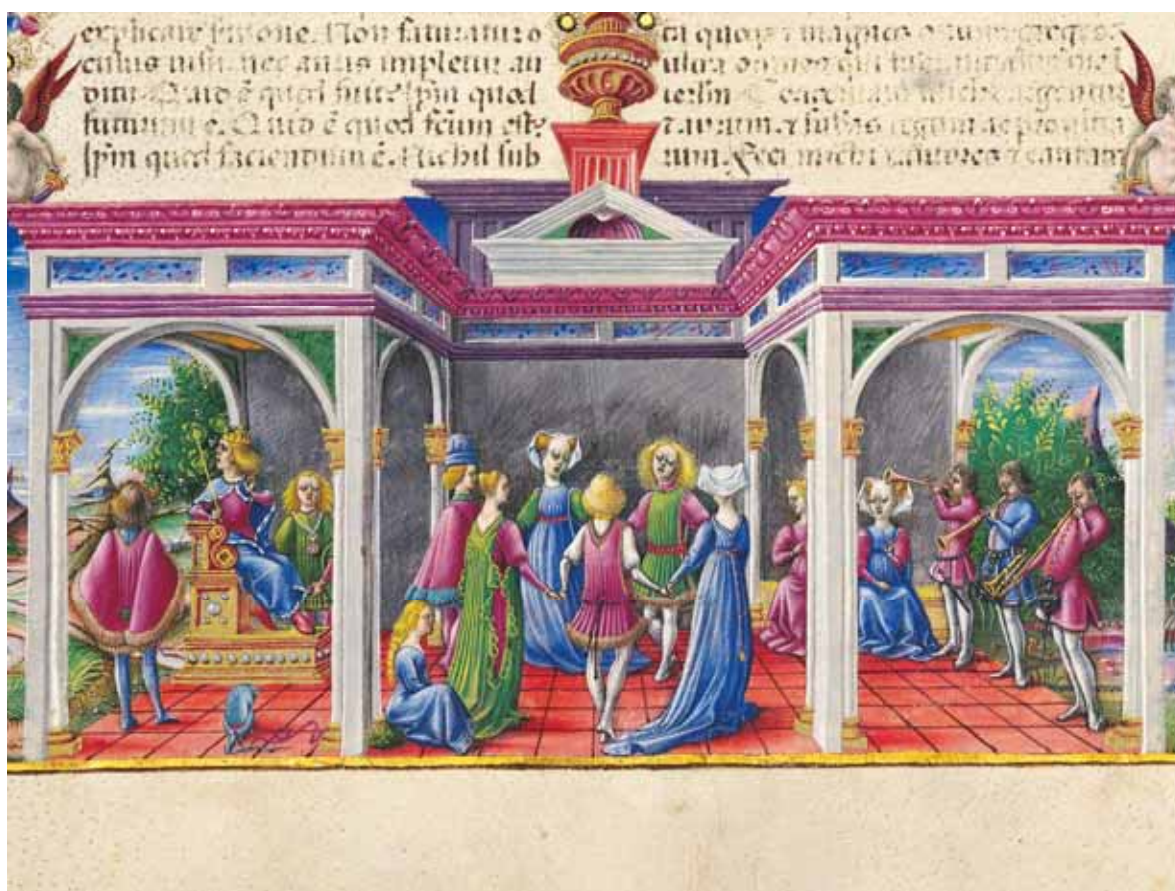 explicare sermone. Non saturatur o
culus visu. nec auris impletur au
ditu. Quid ē quod fuit? ipm quod
futurum ē. Quid ē quod fcūm est?
ipm quod faciendum ē. Nichil sub
ta quoqꝫ ⁊ magnos ovium greges.
ultra omnes qui
ierlm Coacervavi michi argentum
⁊ aurum. ⁊ subās regum ac provincia
rum. Feci michi cantores ⁊ cantat